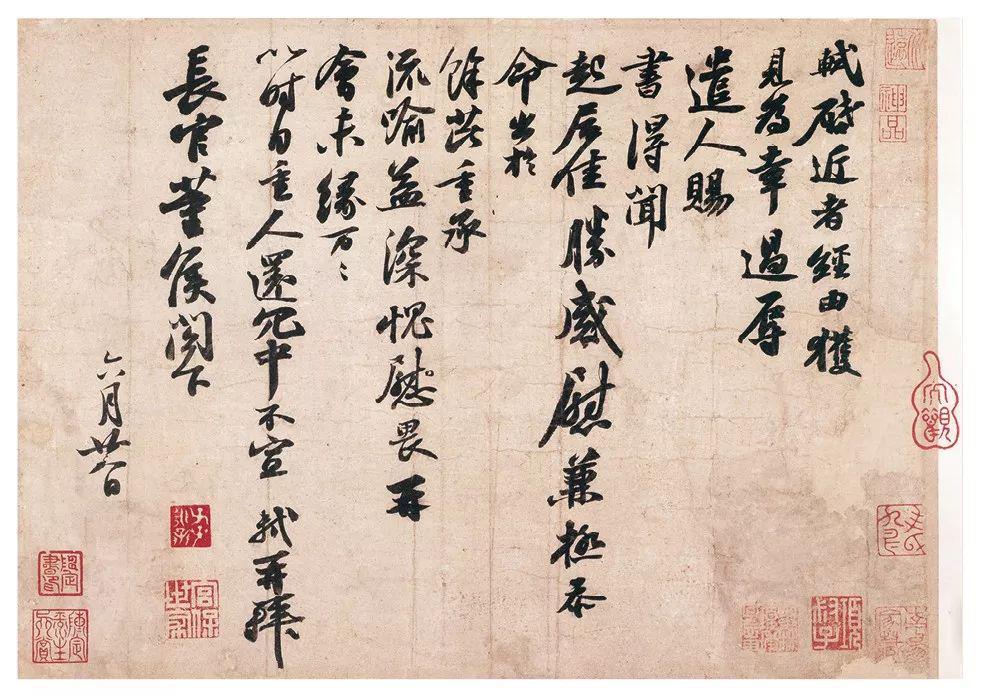 軾啓近者經由獲
見為幸過辱
遣人賜
書得聞
起居佳勝感慰兼極忝
命出於
餘芘重承
流喻益深愧慰畏再
會未緣万〻
以時自重人還冗中不宣 軾再拜
長官董侯閣下
六月廿八日
神品